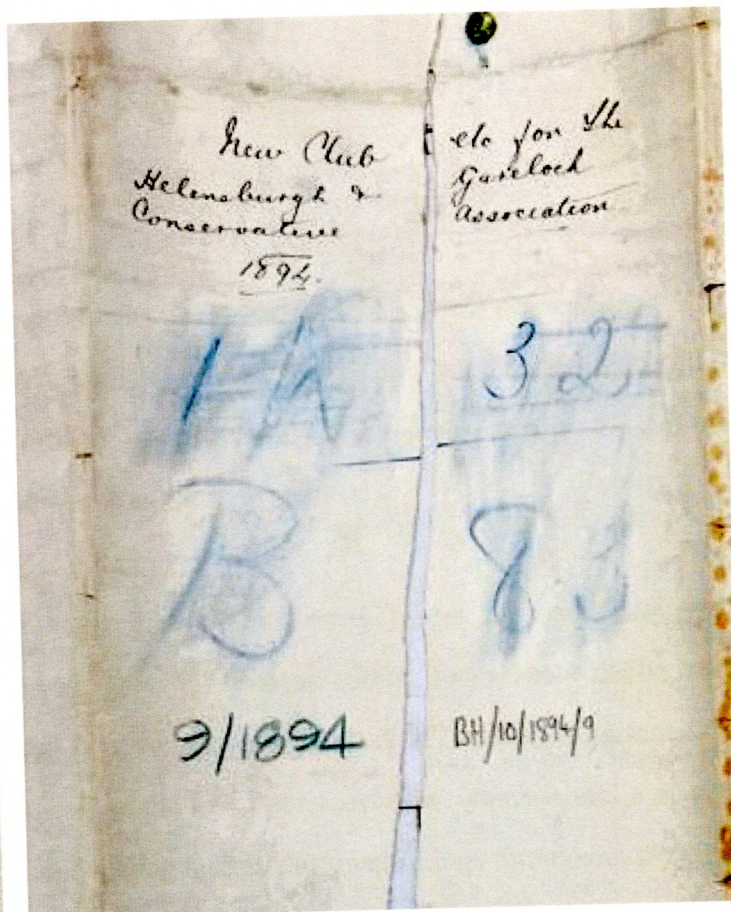 New Club etc for the
Helensburgh & Gareloch
Conservative Association
1894.
1A 32
B 83
9/1894 BH/10/1894/9